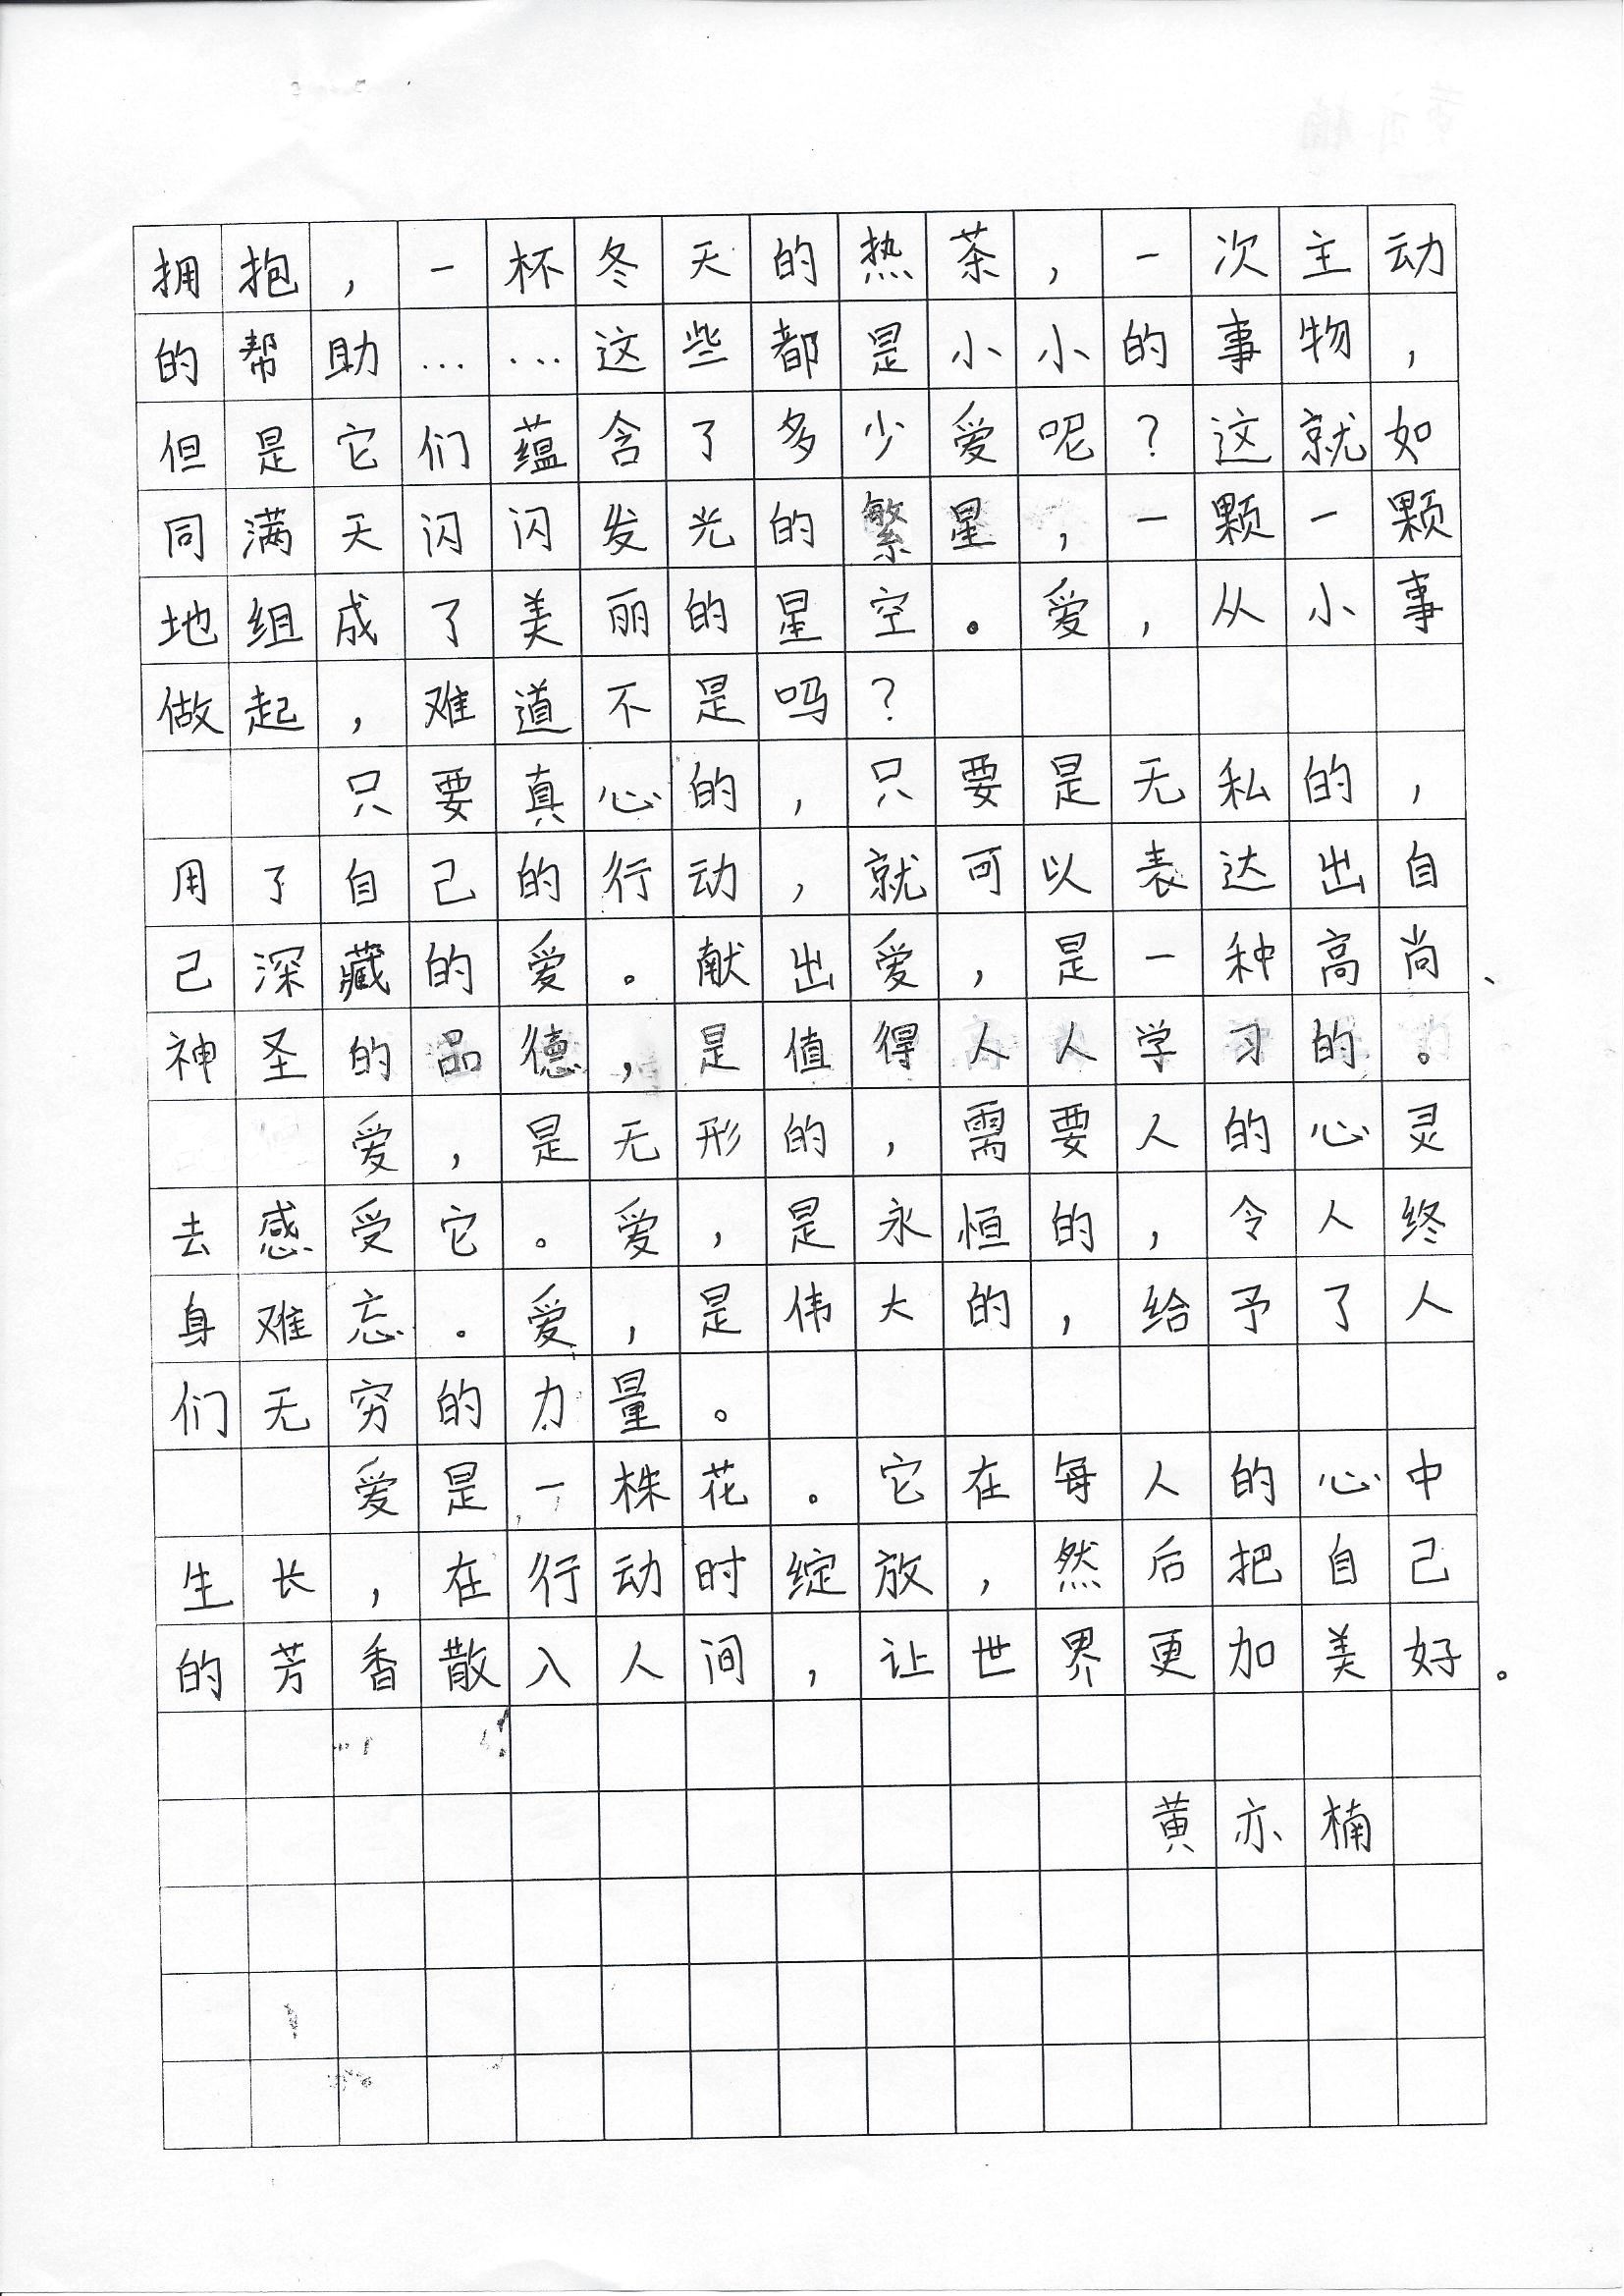 拥抱，一杯冬天的热茶，一次主动
的帮助……这些都是小小的事物，
但是它们蕴含了多少爱呢？这就如
同满天闪闪发光的繁星，一颗一颗
地组成了美丽的星空。爱，从小事
做起，难道不是吗？
只要真心的，只要是无私的，
用了自己的行动，就可以表达出自
己深藏的爱。献出爱，是一种高尚、
神圣的品德，是值得人人学习的。
爱，是无形的，需要人的心灵
去感受它。爱，是永恒的，令人终
身难忘。爱，是伟大的，给予了人
们无穷的力量。
爱是一株花。它在每人的心中
生长，在行动时绽放，然后把自己
的芳香散入人间，让世界更加美好。
黄亦楠